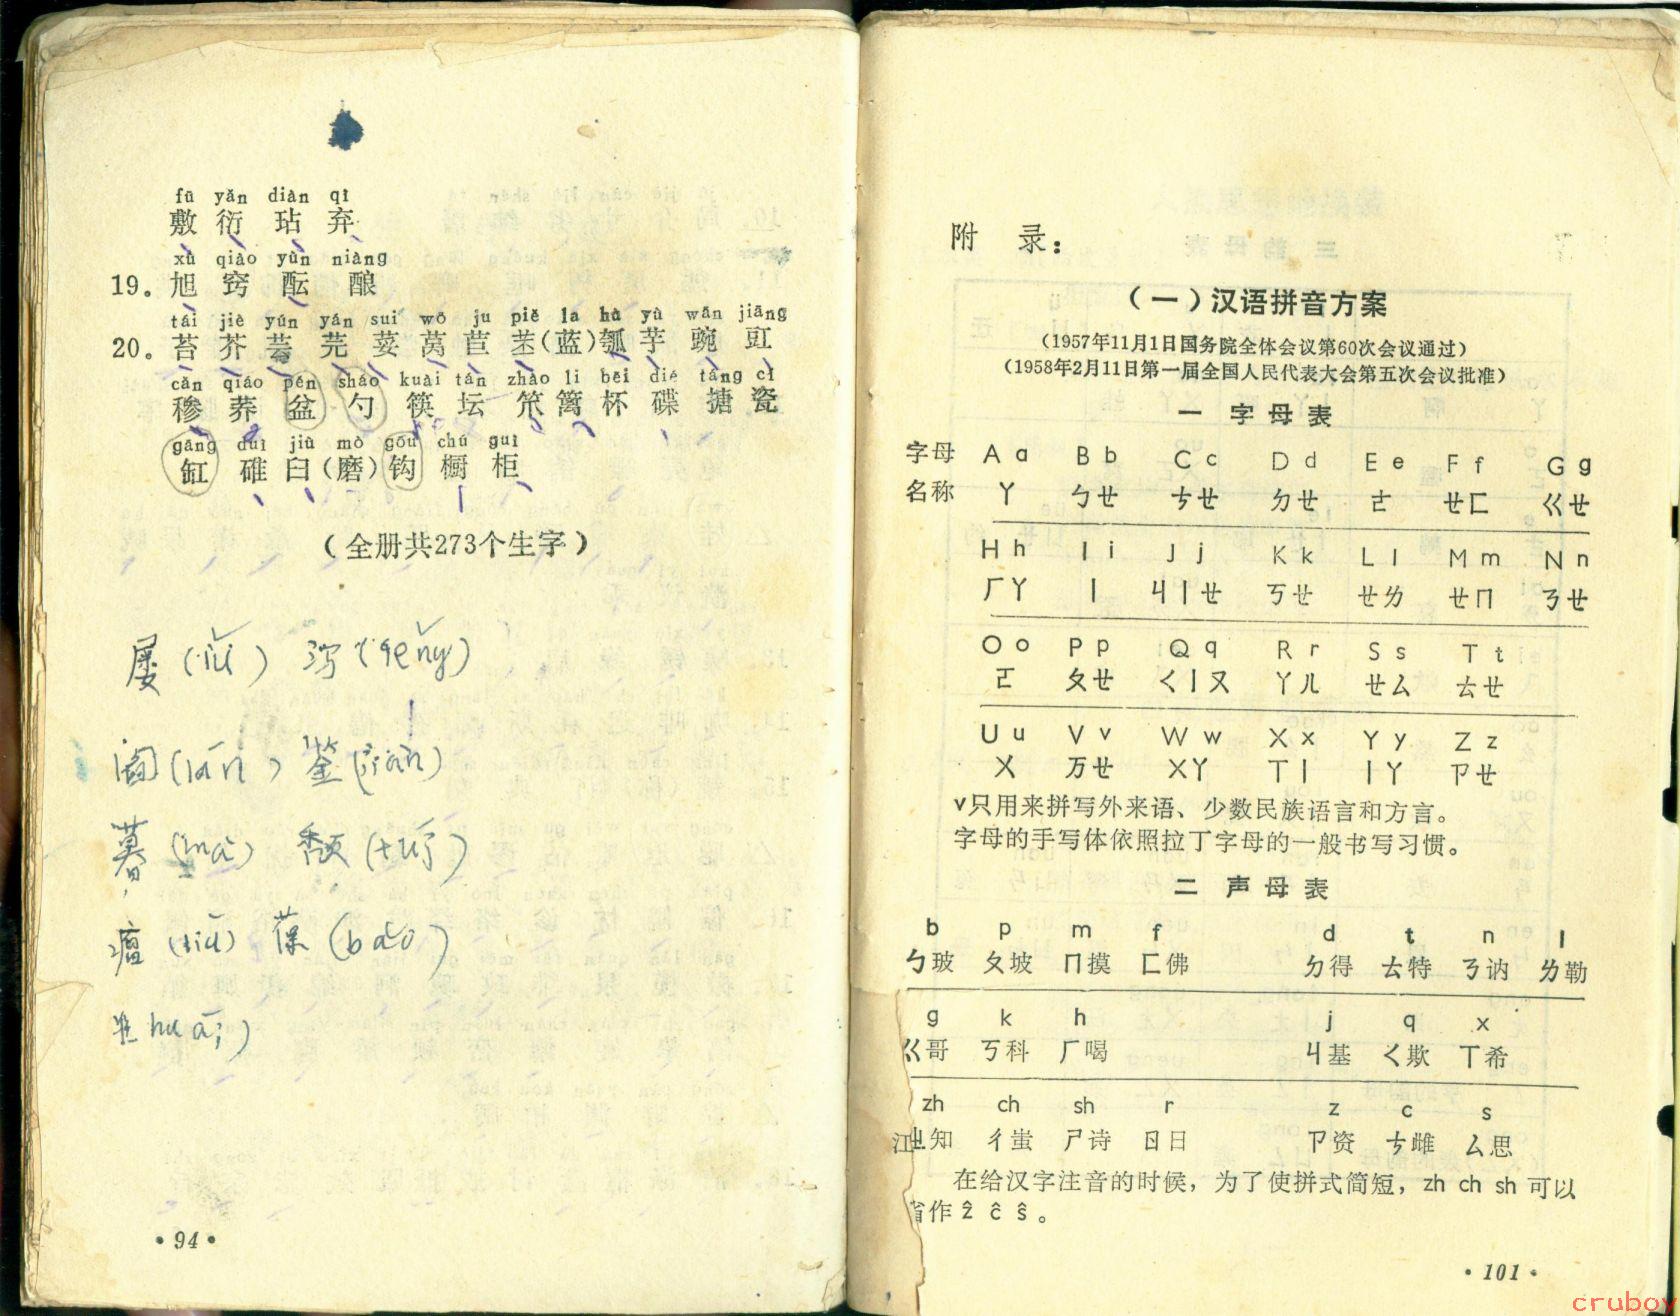 fū yǎn diàn qì
敷 衍 玷 弃
xù qiào yùn niàng
19。旭 窍 酝 酿
tái jiè yún yán sui wō ju piě la hù yù wān jiāng
20。苔 芥 芸 芫 荽 莴 苣 苤(蓝)瓠 芋 豌 豇
cǎn qiáo pén sháo kuài tán zhào li bēi dié táng cí
䅟 荞 盆 勺 筷 坛 笊 篱 杯 碟 搪 瓷
gāng duì jiù mò gōu chú guì
缸 碓 臼(磨)钩 橱 柜
(全册共273个生字)
屡
阎 鉴(jiàn)
暮 颓
瘤 葆(bǎo)
·94·
附 录:
(一)汉语拼音方案
(1957年11月1日国务院全体会议第60次会议通过)
(1958年2月11日第一届全国人民代表大会第五次会议批准)
一 字 母 表
字母 A a B b C c D d E e F f G g
名称 ㄚ ㄅㄝ ㄘㄝ ㄉㄝ ㄜ ㄝㄈ ㄍㄝ
H h I i J j K k L l M m N n
ㄏㄚ ㄧ ㄐㄧㄝ ㄎㄝ ㄝㄌ ㄝㄇ ㄋㄝ
O o P p Q q R r S s T t
ㄛ ㄆㄝ ㄑㄧㄡ ㄚㄦ ㄝㄙ ㄊㄝ
U u V v W w X x Y y Z z
ㄨ ㄪㄝ ㄨㄚ ㄒㄧ ㄧㄚ ㄗㄝ
v只用来拼写外来语、少数民族语言和方言。
字母的手写体依照拉丁字母的一般书写习惯。
二 声 母 表
b p m f d t n l
ㄅ玻 ㄆ坡 ㄇ摸 ㄈ佛 ㄉ得 ㄊ特 ㄋ讷 ㄌ勒
g k h j q x
ㄍ哥 ㄎ科 ㄏ喝 ㄐ基 ㄑ欺 ㄒ希
zh ch sh r z c s
ㄓ知 ㄔ蚩 ㄕ诗 ㄖ日 ㄗ资 ㄘ雌 ㄙ思
在给汉字注音的时候,为了使拼式简短,zh ch sh 可以
省作 ẑ ĉ ŝ。
·101·
cruboy